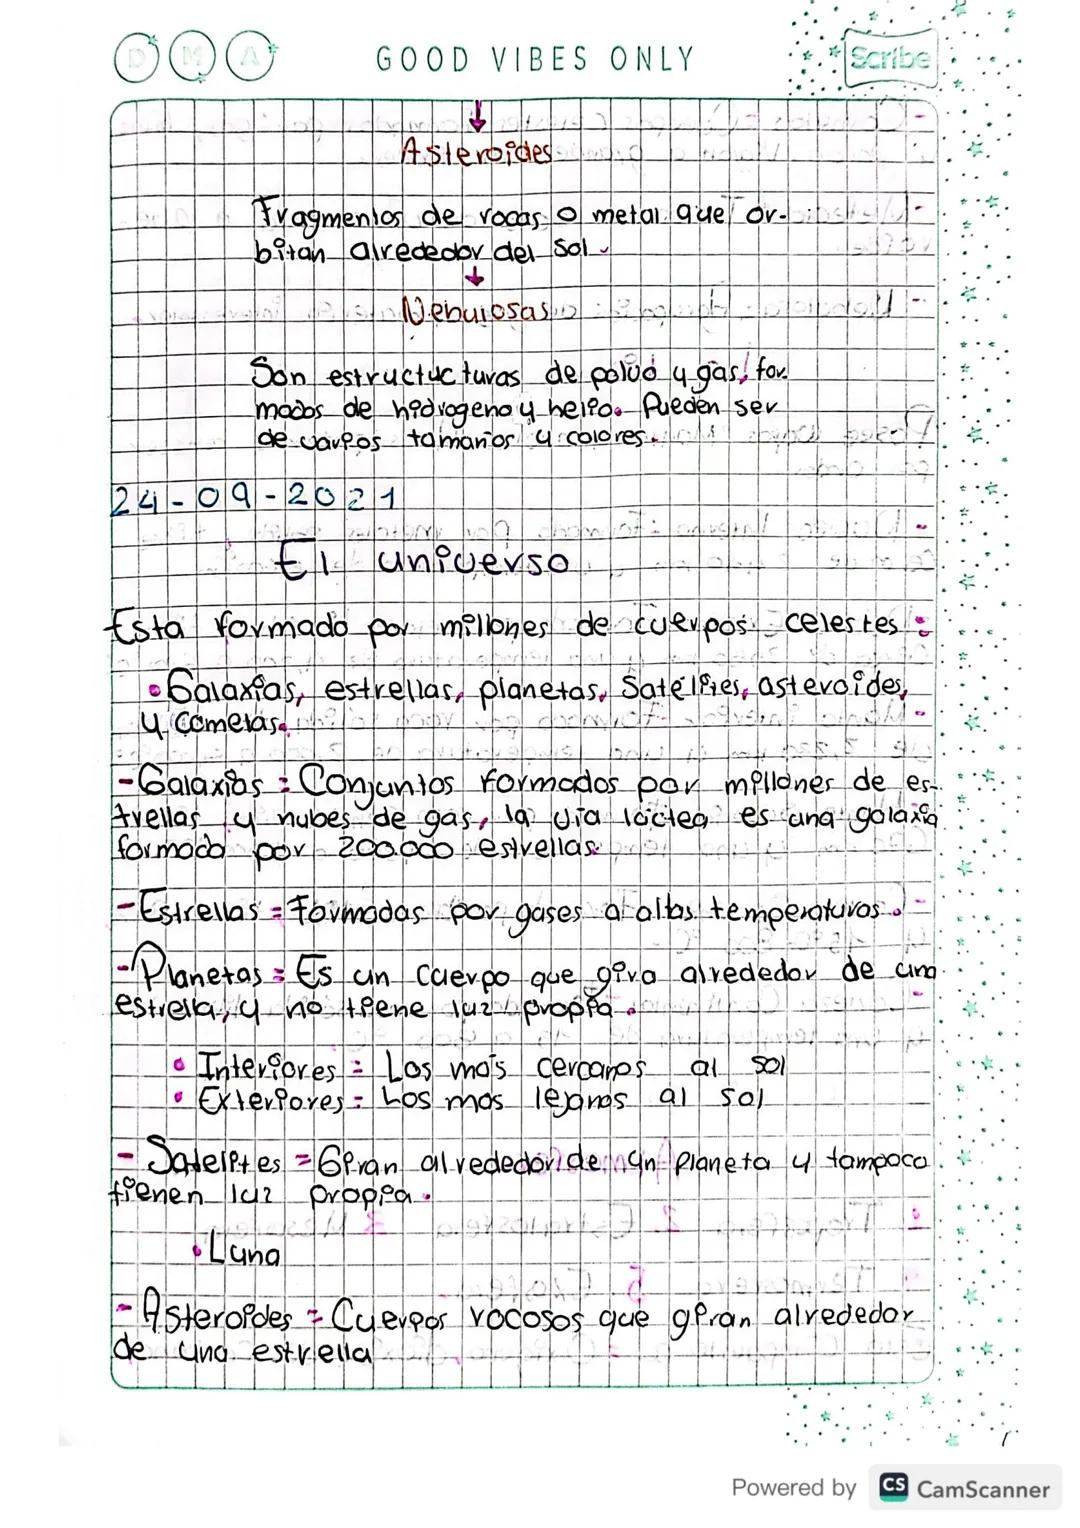 D M A GOOD VIBES ONLY Scribe
Asteroides
Fragmentos de rocas o metal que or-
bitan alrededor del sol.
Nebulosas
Son estructucturas de polvo y gas, for-
mados de hidrogeno y helio. Pueden ser
de varios tamaños y colores.
24-09-2021
El universo
Esta formado por millones de cuerpos celestes:
•Galaxias, estrellas, planetas, Satélites, asteroides,
y cometas.
-Galaxias: Conjuntos formados por millones de es-
trellas y nubes de gas, la vía láctea es una galaxia
formada por 200.000 estrellas.
-Estrellas = Formadas por gases a altas temperaturas.
-Planetas: Es un cuerpo que gira alrededor de una
estrella, y no tiene luz propia.
• Interiores = Los más cercanos al sol
• Exteriores = Los mas lejanos al sol
- Satelites = Giran alrededor de un planeta y tampoco
tienen luz propia.
• Luna
- Asteroides = Cuerpos rocosos que giran alrededor
de una estrella
Powered by CS CamScanner